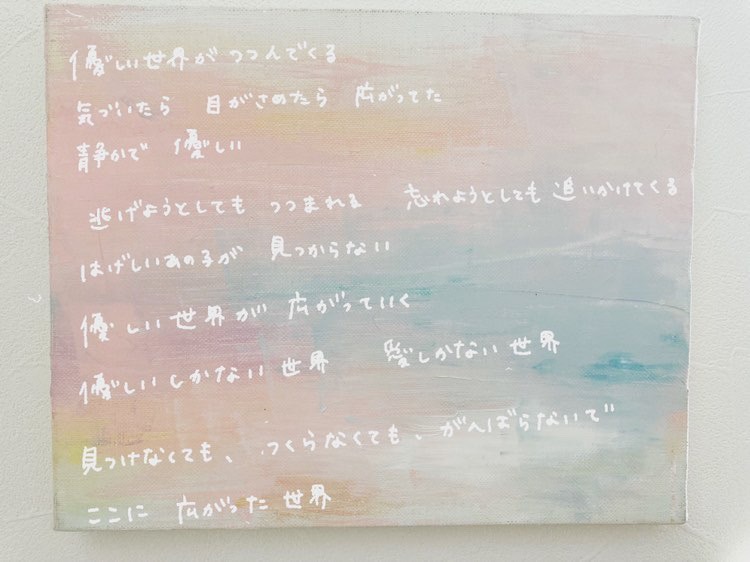 優しい世界が つつんでくる
気づいたら 目がさめたら 広がってた
静かで 優しい
逃げようとしても つつまれる 忘れようとしても 追いかけてくる
はげしいあの子が 見つからない
優しい世界が 広がっていく
優しいしかない世界 愛しかない世界
見つけなくても、つくらなくても、がんばらないで
ここに 広がった世界